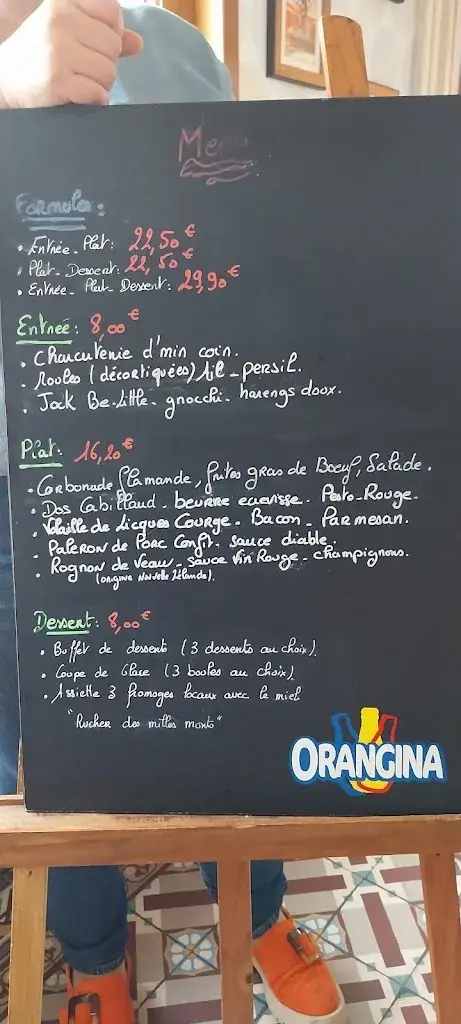 Menu
Formules:
• Entrée - Plat: 22,50 €
• Plat - Dessert: 22,50 €
• Entrée - Plat - Dessert: 29,90 €
Entrée: 8,00 €
• Charcuterie d'min coin.
• Moules (décortiquées) Ail - persil.
• Jack Be-Little - gnocchi - harengs doux.
Plat: 16,20 €
• Carbonade flamande, frites gras de Boeuf, Salade.
• Dos Cabillaud - beurre ecrevisse. Pesto-Rouge.
• Volaille de Licques Courge - Bacon - Parmesan.
• Paleron de Porc Confit. sauce diable.
• Rognon de Veau - sauce Vin Rouge - champignons.
(origine Nouvelle Zélande).
Dessert: 8,00 €
• Buffet de desserts (3 desserts au choix)
• Coupe de Glace (3 boules au choix)
• Assiette 3 fromages locaux avec le miel
"Rucher des milles monts"
ORANGINA